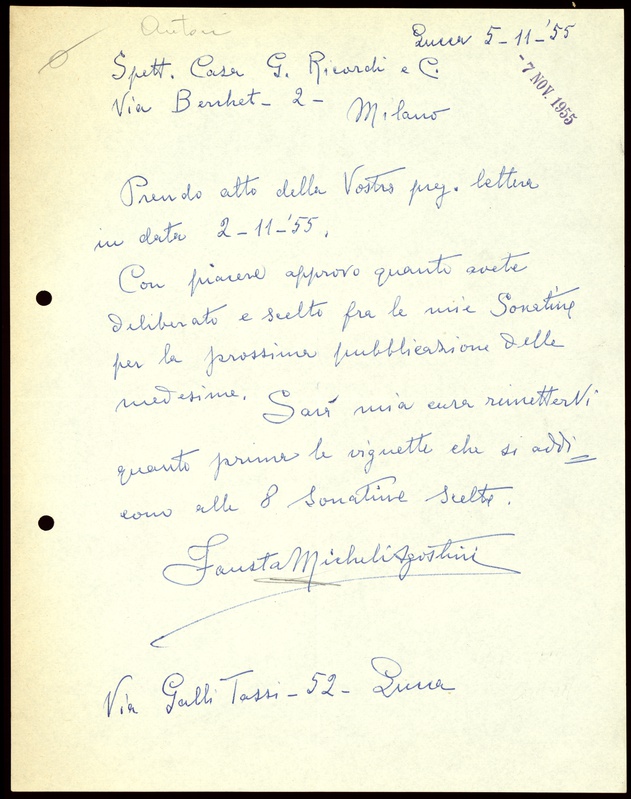 Autori
Lucca 5-11-'55
Spett. Casa G. Ricordi e C.
Via Berchet - 2 -
Milano
- 7 NOV. 1955
Prendo atto della Vostra preg. lettera
in data 2-11-'55.
Con piacere approvo quanto avete
deliberato e scelto fra le mie Sonatine
per la prossima pubblicazione delle
medesime. Sarà mia cura rimetterVi
quanto prima le vignette che si addi
cono alle 8 Sonatine scelte.
Fausta Micheli Agostini
Via Galli Tassi - 52 - Lucca